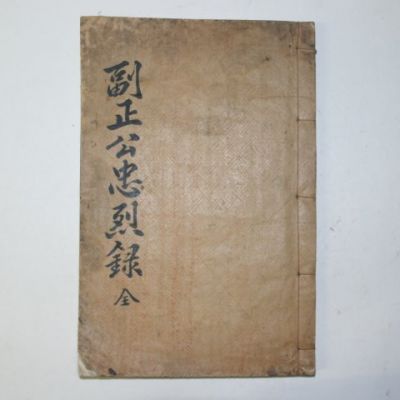 副正公忠烈録全